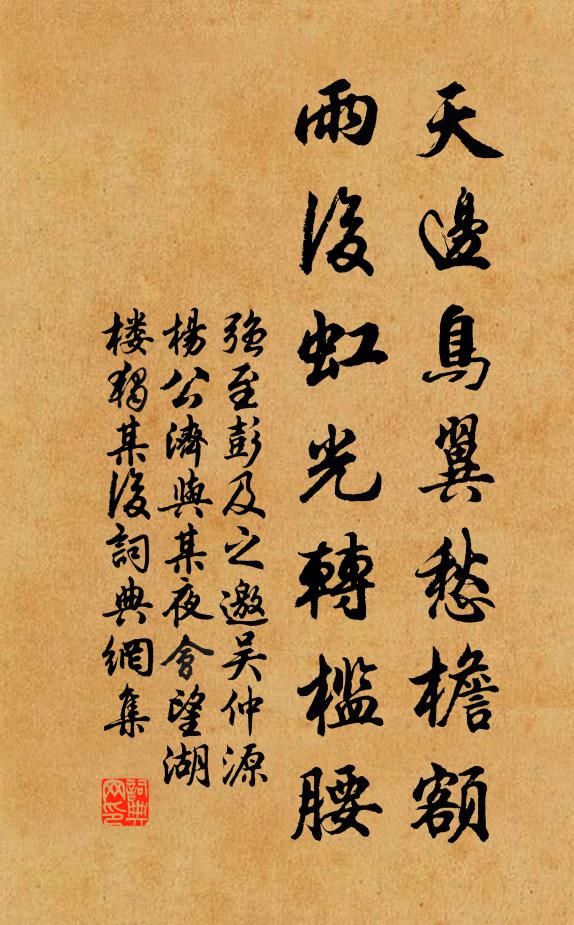 天邊鳥翼愁檐額
雨後虹光轉檻腰
强至彭及之邀吴仲源
楊公濟與某夜會望湖
楼獨某後詞典網集
詞典网印